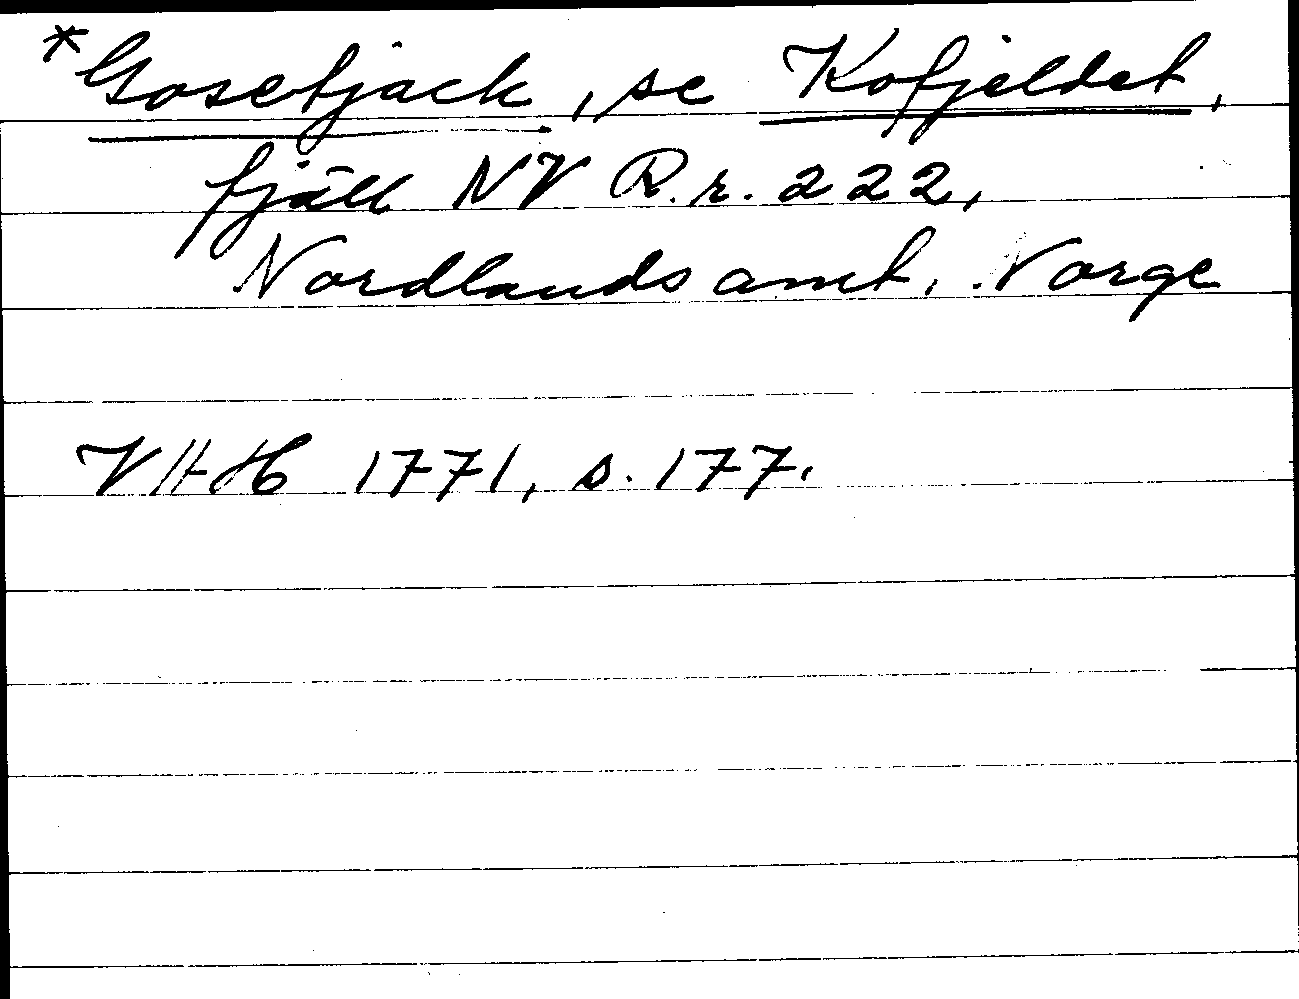 *Gosetjack, se Kofjeldet,
fjäll NV R.r. 222,
Nordlands amt. Norge
VHH 1771, s. 177.